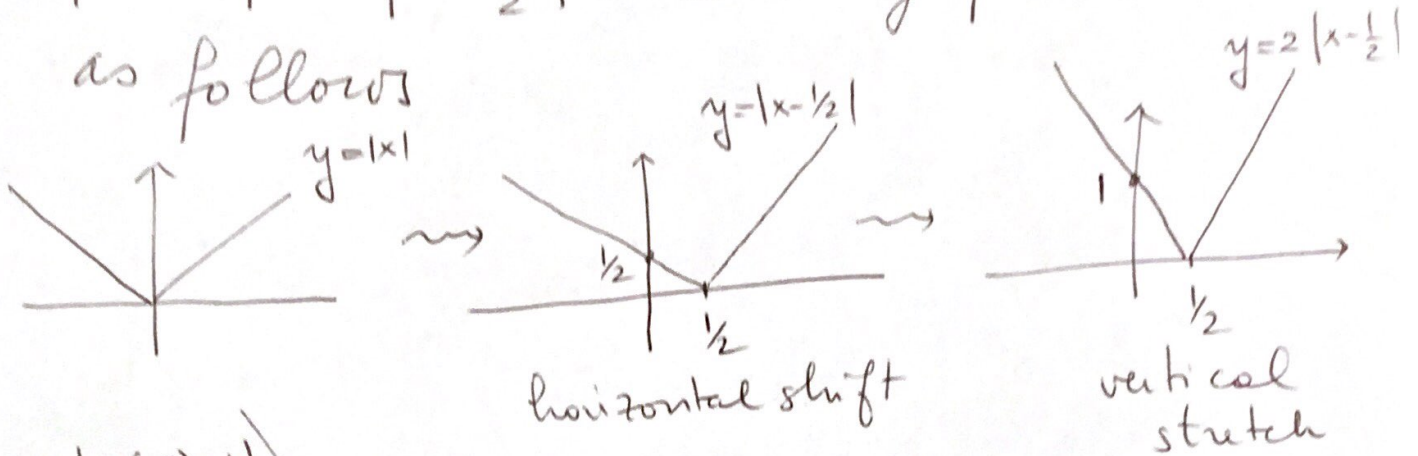 as follows
y=|x|
y=|x-1/2|
1/2
1/2
horizontal shift
y=2|x-1/2|
1
1/2
vertical
stretch